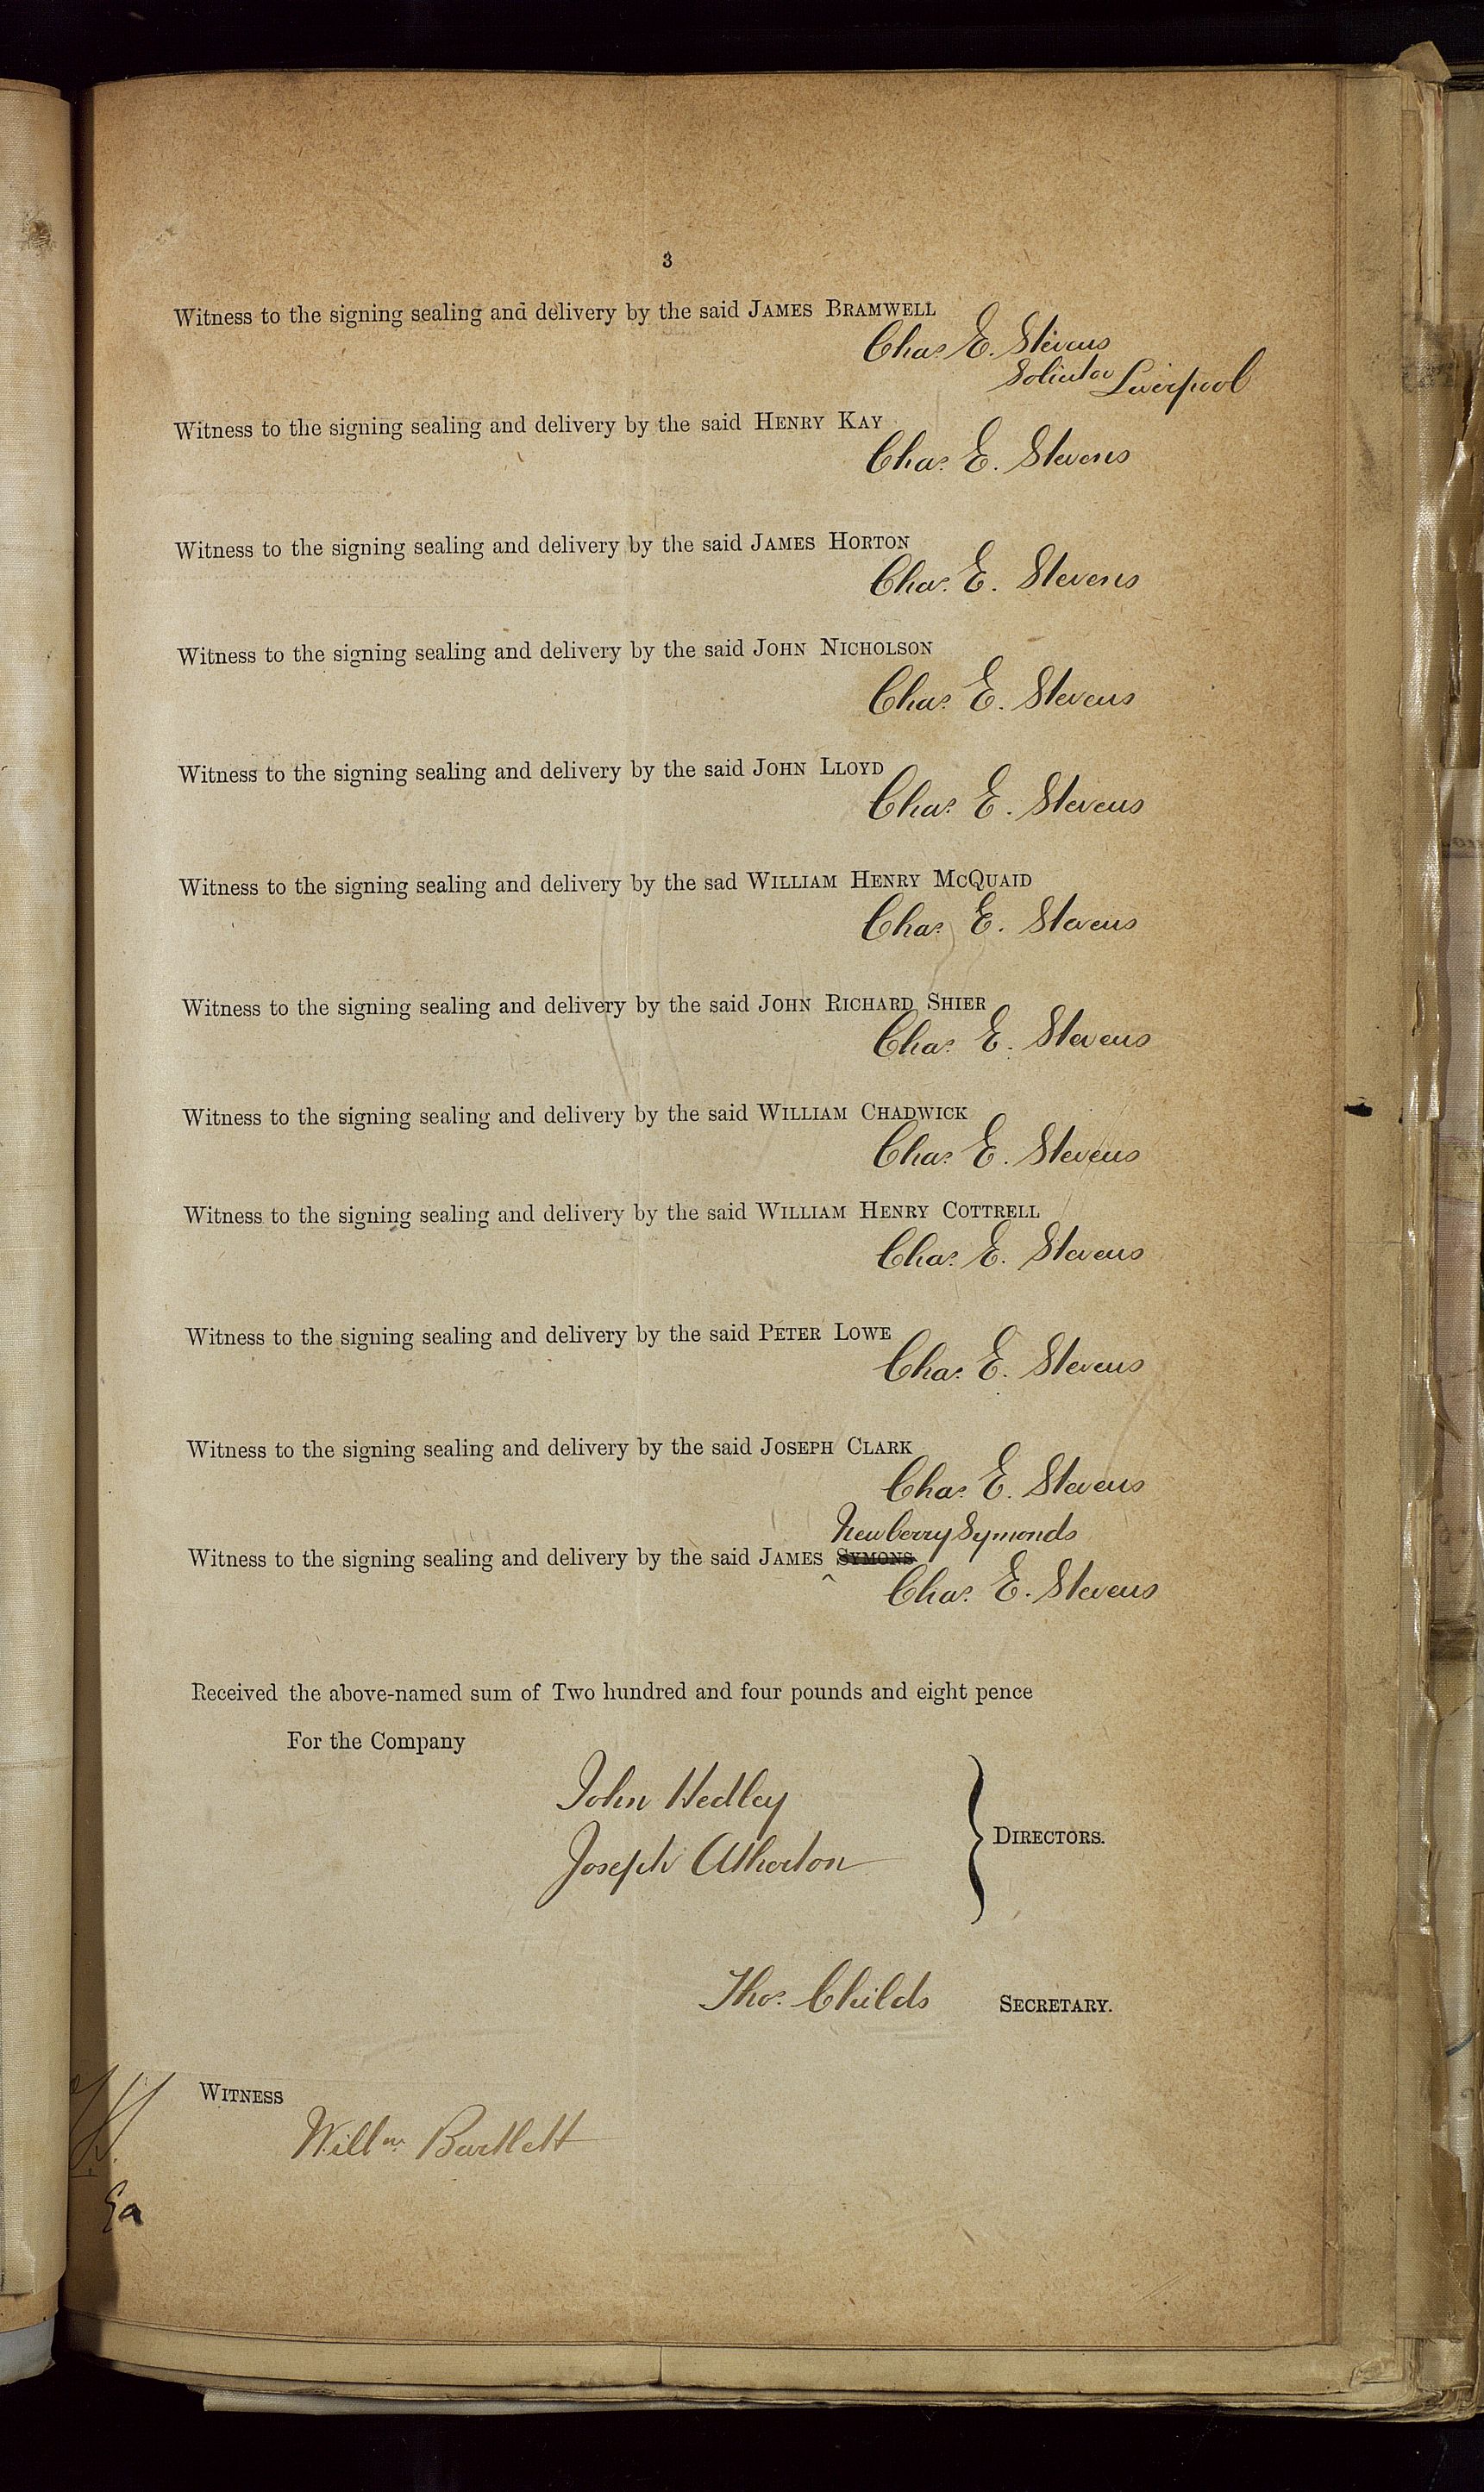 3
Witness to the signing sealing and delivery by the said JAMES BRAMWELL
Chas. E. Stevens
Solicitor Liverpool
Witness to the signing sealing and delivery by the said HENRY KAY
Chas. E. Stevens
Witness to the signing sealing and delivery by the said JAMES HORTON
Chas. E. Stevens
Witness to the signing sealing and delivery by the said JOHN NICHOLSON
Chas. E. Stevens
Witness to the signing sealing and delivery by the said JOHN LLOYD
Chas. E. Stevens
Witness to the signing sealing and delivery by the sad WILLIAM HENRY MCQUAID
Chas. E. Stevens
Witness to the signing sealing and delivery by the said JOHN RICHARD SHIER
Chas. E. Stevens
Witness to the signing sealing and delivery by the said WILLIAM CHADWICK
Chas. E. Stevens
Witness to the signing sealing and delivery by the said WILLIAM HENRY COTTRELL
Chas. E. Stevens
Witness to the signing sealing and delivery by the said PETER LOWE
Chas. E. Stevens
Witness to the signing sealing and delivery by the said JOSEPH CLARK
Chas. E. Stevens
Newberry Symonds
Witness to the signing sealing and delivery by the said JAMES SYMONS
Chas. E. Stevens
Received the above-named sum of Two hundred and four pounds and eight pence
For the Company
John Hedley
DIRECTORS.
Joseph Atherton
Thos. Childs SECRETARY.
WITNESS
Willm. Bartlett